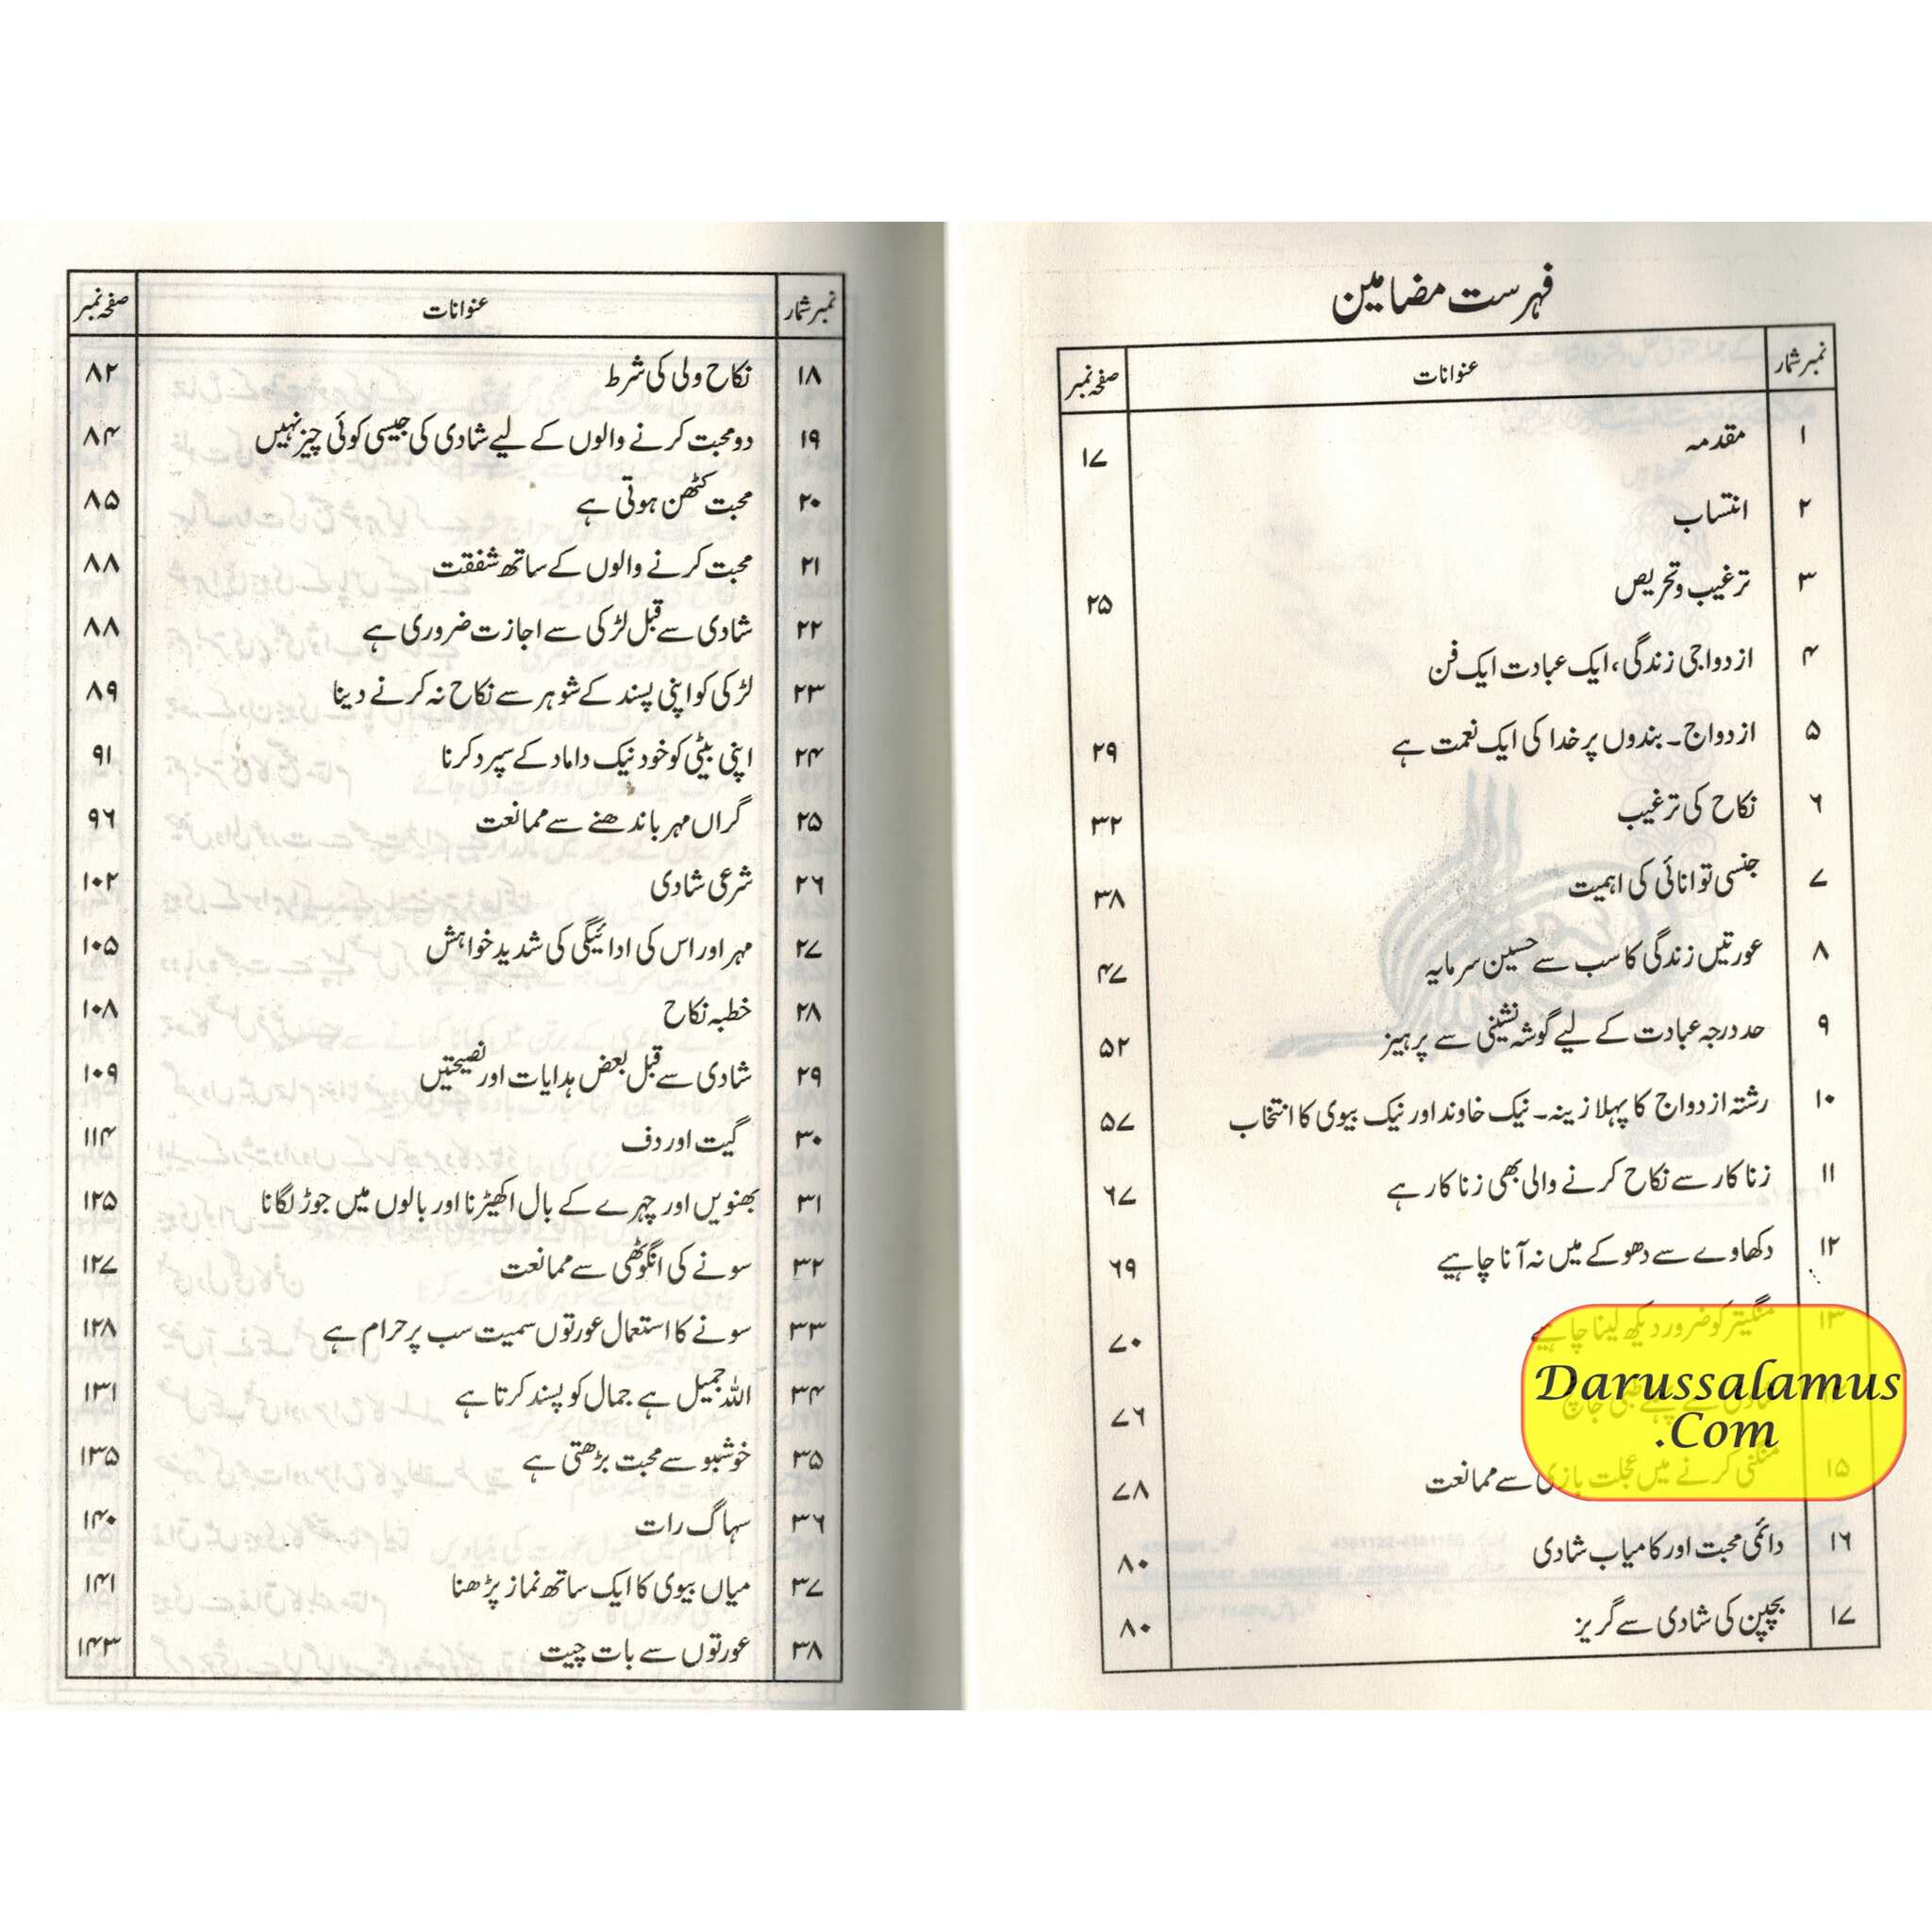 فہرست مضامین
نمبر شمار عنوانات صفحہ نمبر
۱ مقدمہ ۱۷
۲ انتساب
۳ ترغیب و تحریص ۲۵
۴ ازدواجی زندگی، ایک عبادت ایک فن
۵ ازدواج۔ بندوں پر خدا کی ایک نعمت ہے ۲۹
۶ نکاح کی ترغیب ۳۲
۷ جنسی توانائی کی اہمیت ۳۸
۸ عورتیں زندگی کا سب سے حسین سرمایہ ۴۷
۹ حد درجہ عبادت کے لیے گوشہ نشینی سے پرہیز ۵۲
۱۰ رشتہ ازدواج کا پہلا زینہ۔ نیک خاوند اور نیک بیوی کا انتخاب ۵۷
۱۱ زنا کار سے نکاح کرنے والی بھی زنا کار ہے ۶۷
۱۲ دکھاوے سے دھوکے میں نہ آنا چاہیے ۶۹
۱۳ منگیتر کو ضرور دیکھ لینا چاہیے ۷۰
۷۶
۱۵ منگنی کرنے میں عجلت بازی سے ممانعت ۷۸
۱۶ دائمی محبت اور کامیاب شادی ۸۰
۱۷ بچپن کی شادی سے گریز ۸۰
Darussalamus
.Com
نمبر شمار عنوانات صفحہ نمبر
۱۸ نکاح ولی کی شرط ۸۲
۱۹ دو محبت کرنے والوں کے لیے شادی کی جیسی کوئی چیز نہیں ۸۴
۲۰ محبت کٹھن ہوتی ہے ۸۵
۲۱ محبت کرنے والوں کے ساتھ شفقت ۸۸
۲۲ شادی سے قبل لڑکی سے اجازت ضروری ہے ۸۸
۲۳ لڑکی کو اپنی پسند کے شوہر سے نکاح نہ کرنے دینا ۸۹
۲۴ اپنی بیٹی کو خود نیک داماد کے سپرد کرنا ۹۱
۲۵ گراں مہر باندھنے سے ممانعت ۹۶
۲۶ شرعی شادی ۱۰۲
۲۷ مہر اور اس کی ادائیگی کی شدید خواہش ۱۰۵
۲۸ خطبہ نکاح ۱۰۸
۲۹ شادی سے قبل بعض ہدایات اور نصیحتیں ۱۰۹
۳۰ گیت اور دف ۱۱۴
۳۱ بھنویں اور چہرے کے بال اکھیڑنا اور بالوں میں جوڑ لگانا ۱۲۵
۳۲ سونے کی انگوٹھی سے ممانعت ۱۲۷
۳۳ سونے کا استعمال عورتوں سمیت سب پر حرام ہے ۱۲۸
۳۴ اللہ جمیل ہے جمال کو پسند کرتا ہے ۱۳۱
۳۵ خوشبو سے محبت بڑھتی ہے ۱۳۵
۳۶ سہاگ رات ۱۴۰
۳۷ میاں بیوی کا ایک ساتھ نماز پڑھنا ۱۴۱
۳۸ عورتوں سے بات چیت ۱۴۳